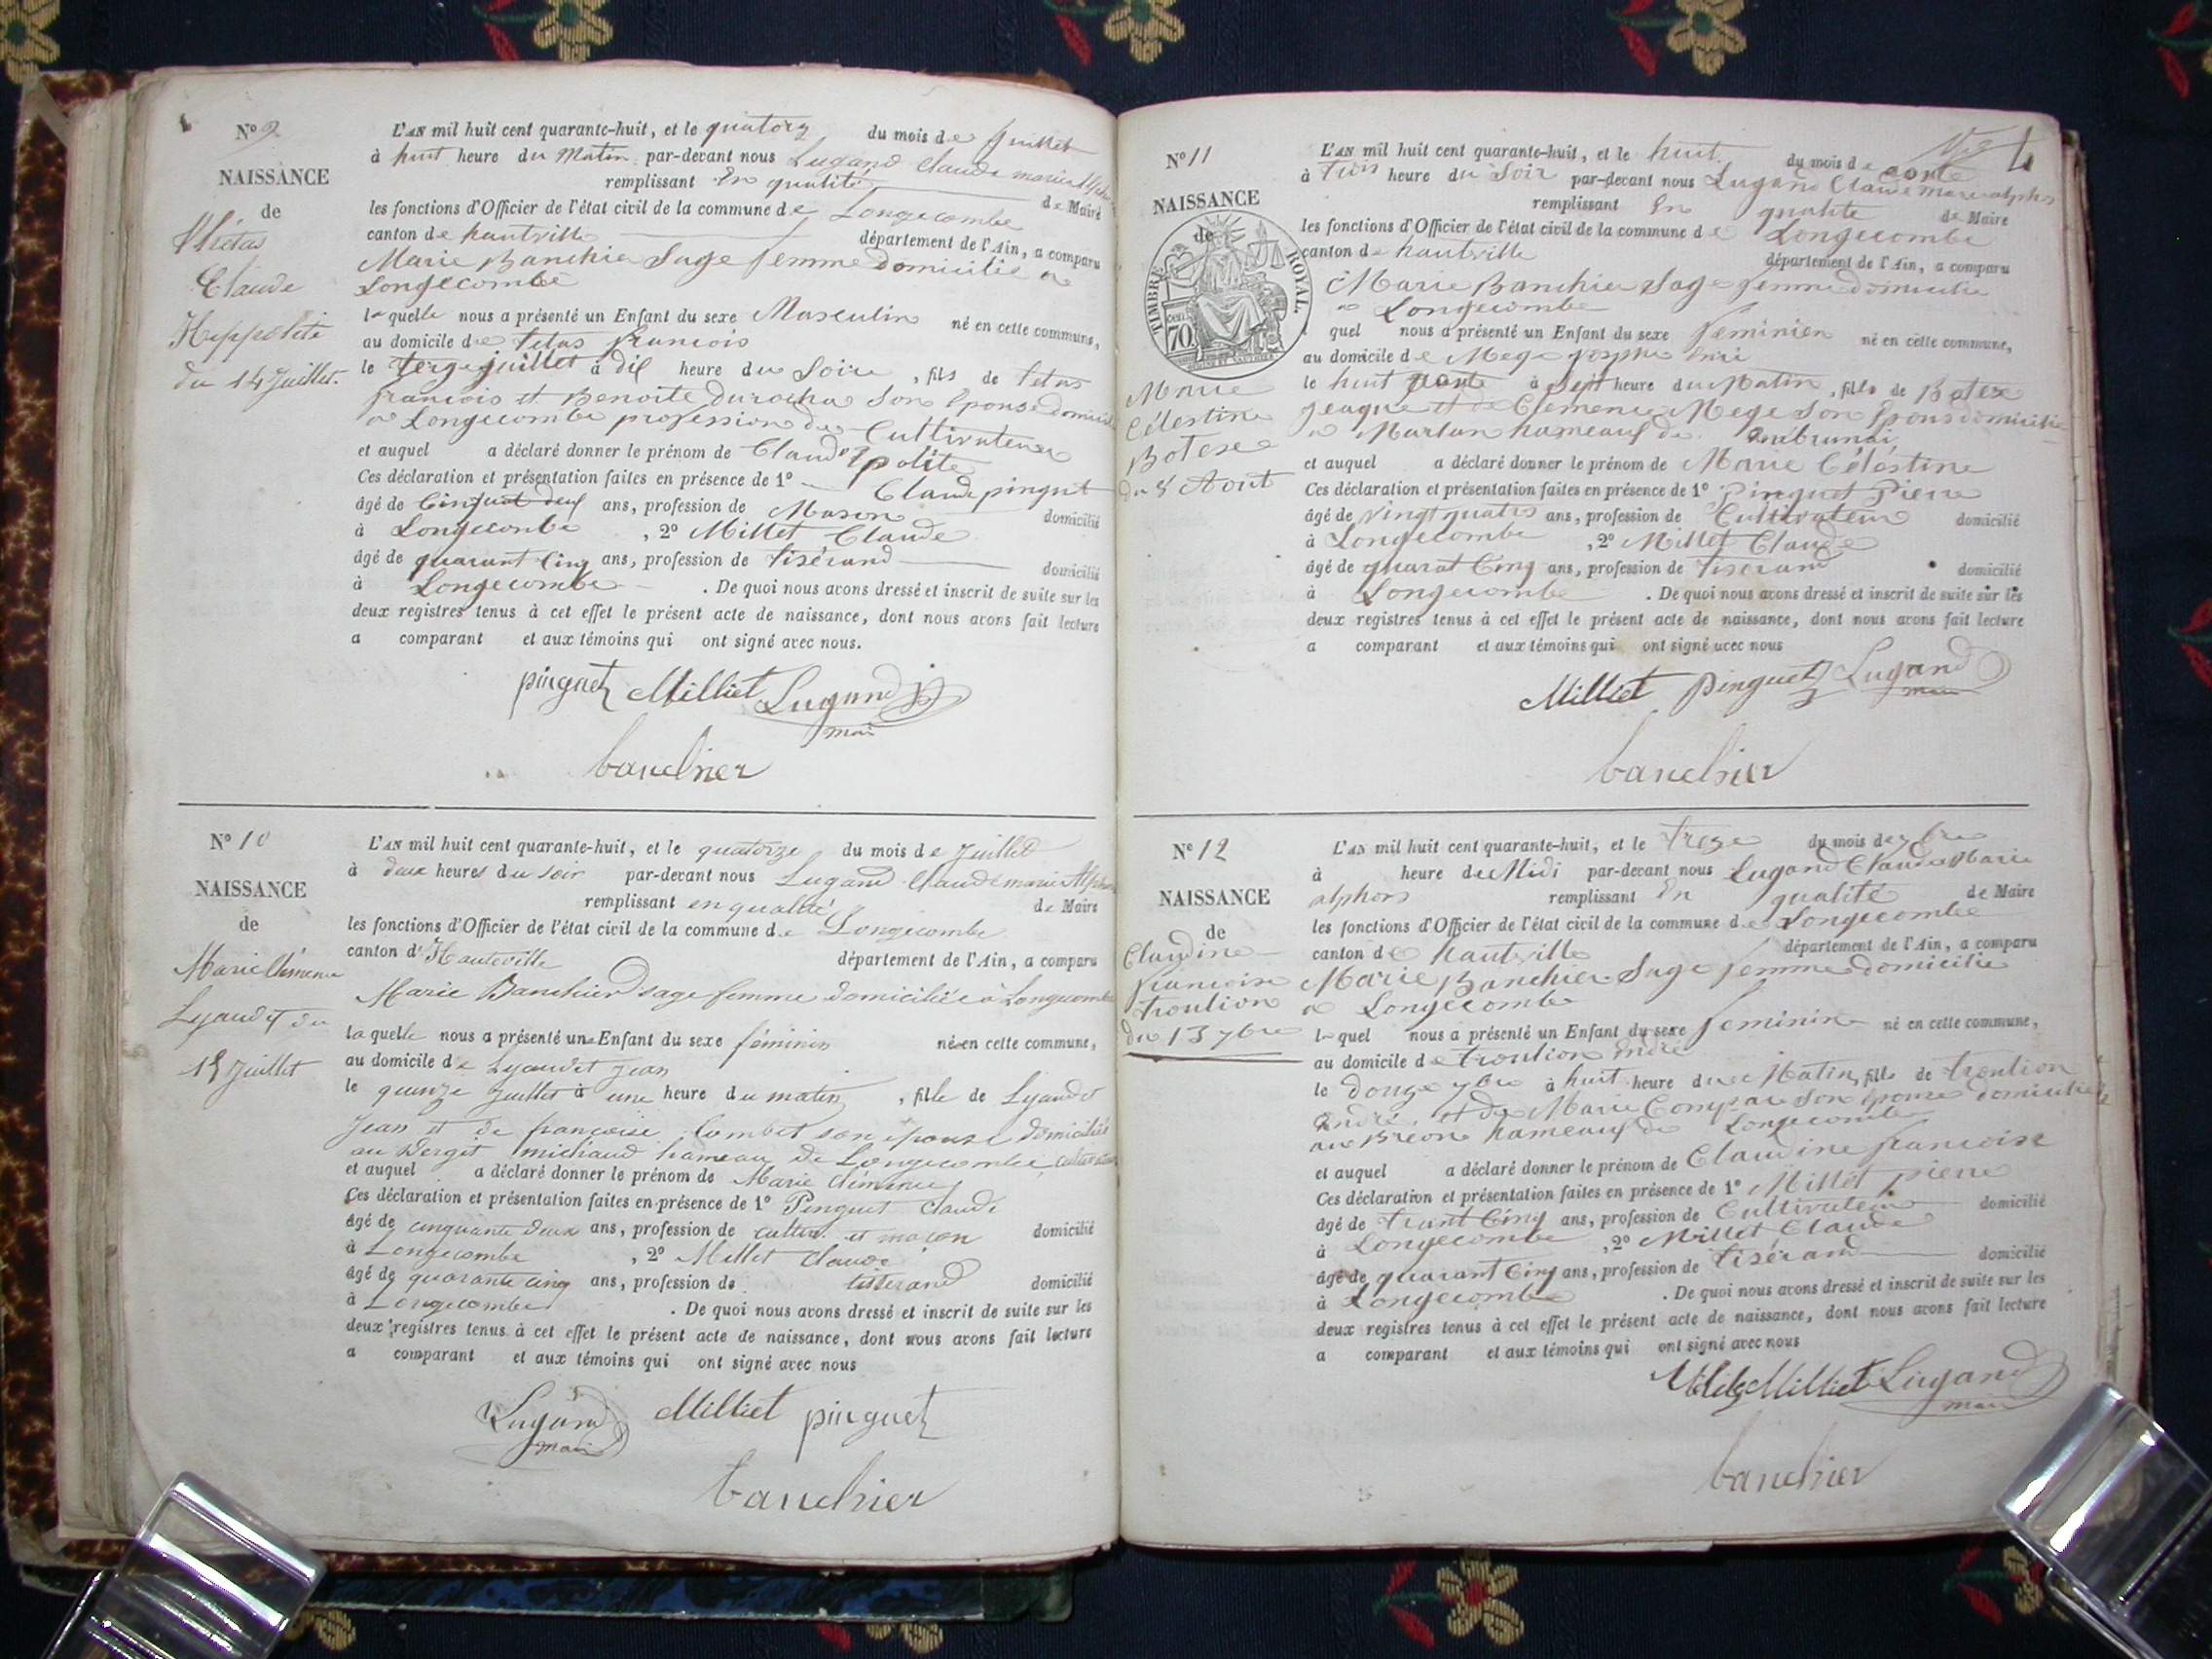 N° 9
NAISSANCE
de
Thétas
Claude
Hippolite
du 14 Juillet.
L'AN mil huit cent quarante-huit, et le quatorz du mois de Juillet
à huit heure du Matin par-devant nous Lugand Claude marie Alphons
remplissant En qualité de Maire
les fonctions d'Officier de l'état civil de la commune de Longecombe
canton de hautville département de l'Ain, a comparu
Marie Banchier Sage femme domicilie a
Longecombe
laquelle nous a présenté un Enfant du sexe Masculin né en cette commune,
au domicile de tetas francois
le juillet à dix heure du Soire, fils de tetas
francois et Benoite durochat Son Epouse domicilie
a Longecombe profession de Cultivateur
et auquel a déclaré donner le prénom de Claude
Ces déclaration et présentation faites en présence de 1° Claude pinguet
âgé de Cinquat deux ans, profession de Mason domicilié
à Longecombe, 2° Millet Claude
âgé de quarant Cinq ans, profession de tisérand domicilié
à Longecombe. De quoi nous avons dressé et inscrit de suite sur les
deux registres tenus à cet effet le présent acte de naissance, dont nous avons fait lecture
a comparant et aux témoins qui ont signé avec nous.
pinguet Milliet Lugand
mair
banchier
N° 10
NAISSANCE
de
Marie Clémence
Lyaudet du
15 Juillet
L'AN mil huit cent quarante-huit, et le quatorze du mois de Juillet
à deux heures du soir par-devant nous Lugand Claude marie Alphons
remplissant en qualité de Maire
les fonctions d'Officier de l'état civil de la commune de Longecombe
canton d'Hauteville département de l'Ain, a comparu
Marie Banchier sage femme domiciliée à Longecombe
laquelle nous a présenté une Enfant du sexe féminin née en cette commune,
au domicile de Lyaudet Jean
le quinze Juillet à une heure du matin, fille de Lyaudet
Jean et de françoise Combet son épouse domiciliés
au Dergit michaud hameau de Longecombe
et auquel a déclaré donner le prénom de Marie Clémence
Ces déclaration et présentation faites en présence de 1° Pinguet Claude
âgé de cinquante deux ans, profession de cultiv. et maçon domicilié
à Longecombe, 2° Millet Claude
âgé de quarante cinq ans, profession de tisserand domicilié
à Longecombe. De quoi nous avons dressé et inscrit de suite sur les
deux registres tenus à cet effet le présent acte de naissance, dont nous avons fait lecture
a comparant et aux témoins qui ont signé avec nous
Lugand Milliet pinguet
mair
banchier
N° 11
NAISSANCE
de
TIMBRE ROYAL
70
Marie
Célestine
Botese
du 8 Aout
L'AN mil huit cent quarante-huit, et le huit du mois de aoute
à trois heure du Soir par-devant nous Lugand Claude marie alphons
remplissant En qualite de Maire
les fonctions d'Officier de l'état civil de la commune de Longecombe
canton de hautville département de l'Ain, a comparu
Marie Banchier Sage femme domicilie
a Longecombe
quel nous a présenté un Enfant du sexe feminien né en cette commune,
au domicile de Mege
le huit aoute à Sept heure du Matin, fille de Botex
Jeaque et de Clemence Mege Son Epous domicilie
a Marlan hameaux de
et auquel a déclaré donner le prénom de Marie Céléstine
Ces déclaration et présentation faites en présence de 1° Pinguet Pierre
âgé de vingt quatre ans, profession de Cultivateur domicilié
à Longecombe, 2° Millet Claude
âgé de quarat Cinq ans, profession de tiserand domicilié
à Longecombe. De quoi nous avons dressé et inscrit de suite sur les
deux registres tenus à cet effet le présent acte de naissance, dont nous avons fait lecture
a comparant et aux témoins qui ont signé avec nous
Milliet Pinguet Lugand
mair
banchier
N° 12
NAISSANCE
de
Claudine
francoise
troution
du 13 7bre
L'AN mil huit cent quarante-huit, et le treze du mois de 7bre
à heure de Midi par-devant nous Lugand Claude Marie
alphons remplissant En qualité de Maire
les fonctions d'Officier de l'état civil de la commune de Longecombe
canton de hautville département de l'Ain, a comparu
Marie Banchier Sage femme domicilie
a Longecombe
laquel nous a présenté un Enfant du sexe feminine né en cette commune,
au domicile de troution andré
le douze 7bre à huit heure du Matin, fille de troution
andré et de Marie Compare Son épouse domicilié
au Bréon hameaux de Longecombe
et auquel a déclaré donner le prénom de Claudine francoise
Ces déclaration et présentation faites en présence de 1° Millet pierre
âgé de trant Cinq ans, profession de Cultivateur domicilié
à Longecombe, 2° Millet Claude
âgé de quarant Cinq ans, profession de tisérand domicilié
à Longecombe. De quoi nous avons dressé et inscrit de suite sur les
deux registres tenus à cet effet le présent acte de naissance, dont nous avons fait lecture
a comparant et aux témoins qui ont signé avec nous
Milliet Lugand
mair
banchier